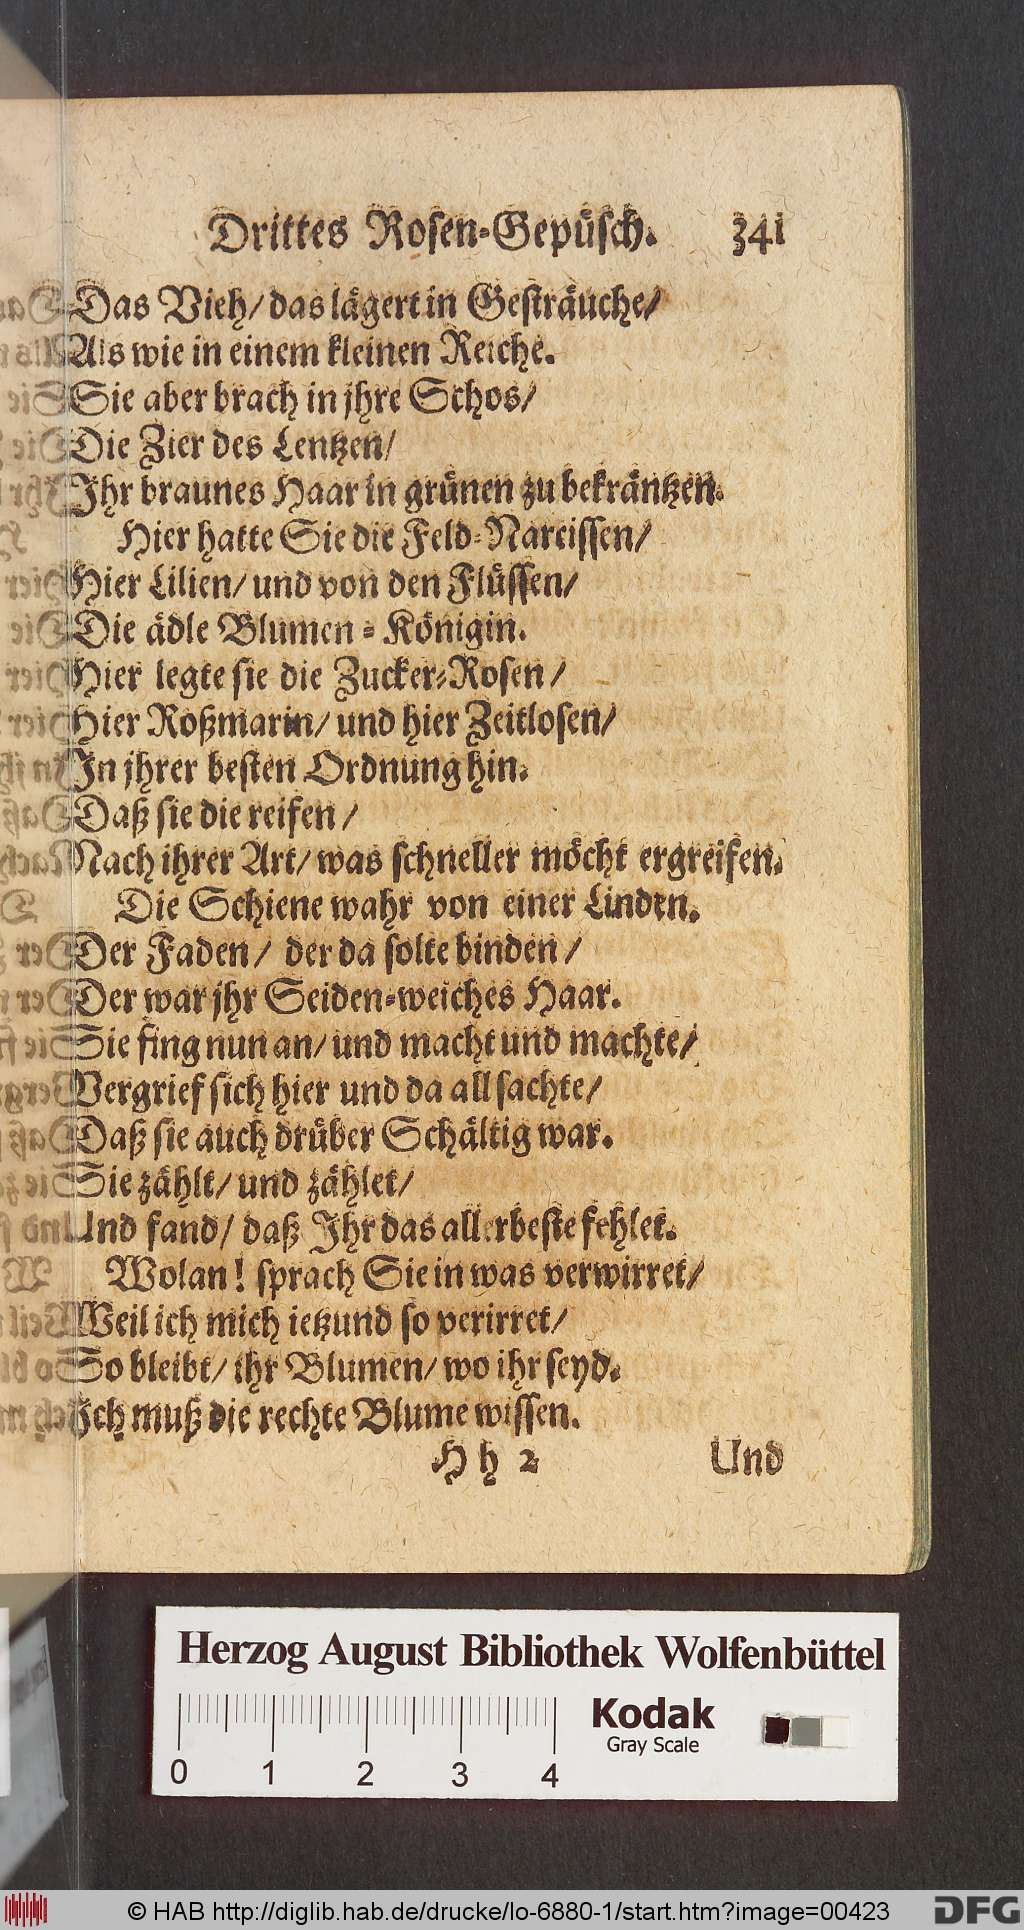 Drittes Rosen-Gepüsch. 341
Das Vieh/ das lägert in Gesträuche/
Als wie in einem kleinen Reiche.
Sie aber brach in jhre Schos/
Die Zier des Lentzen/
Ihr braunes Haar in grünen zu bekräntzen.
Hier hatte Sie die Feld-Narcissen/
Hier Lilien/ und von den Flüssen/
Die ädle Blumen-Königin.
Hier legte sie die Zucker-Rosen/
Hier Roßmarin/ und hier Zeitlosen/
In jhrer besten Ordnung hin.
Daß sie die reifen/
Nach ihrer Art/ was schneller möcht ergreifen.
Die Schiene wahr von einer Linden.
Der Faden/ der da solte binden/
Der war jhr Seiden-weiches Haar.
Sie fing nun an/ und macht und machte/
Vergrief sich hier und da all sachte/
Daß sie auch drüber Schältig war.
Sie zählt/ und zählet/
Und fand/ daß Ihr das allerbeste fehlet.
Wolan! sprach Sie in was verwirret/
Weil ich mich ietzund so verirret/
So bleibt/ ihr Blumen/ wo ihr seyd.
Ich muß die rechte Blume wissen.
H h 2 Und
Herzog August Bibliothek Wolfenbüttel
Kodak
Gray Scale
0 1 2 3 4
© HAB http://diglib.hab.de/drucke/lo-6880-1/start.htm?image=00423
DFG